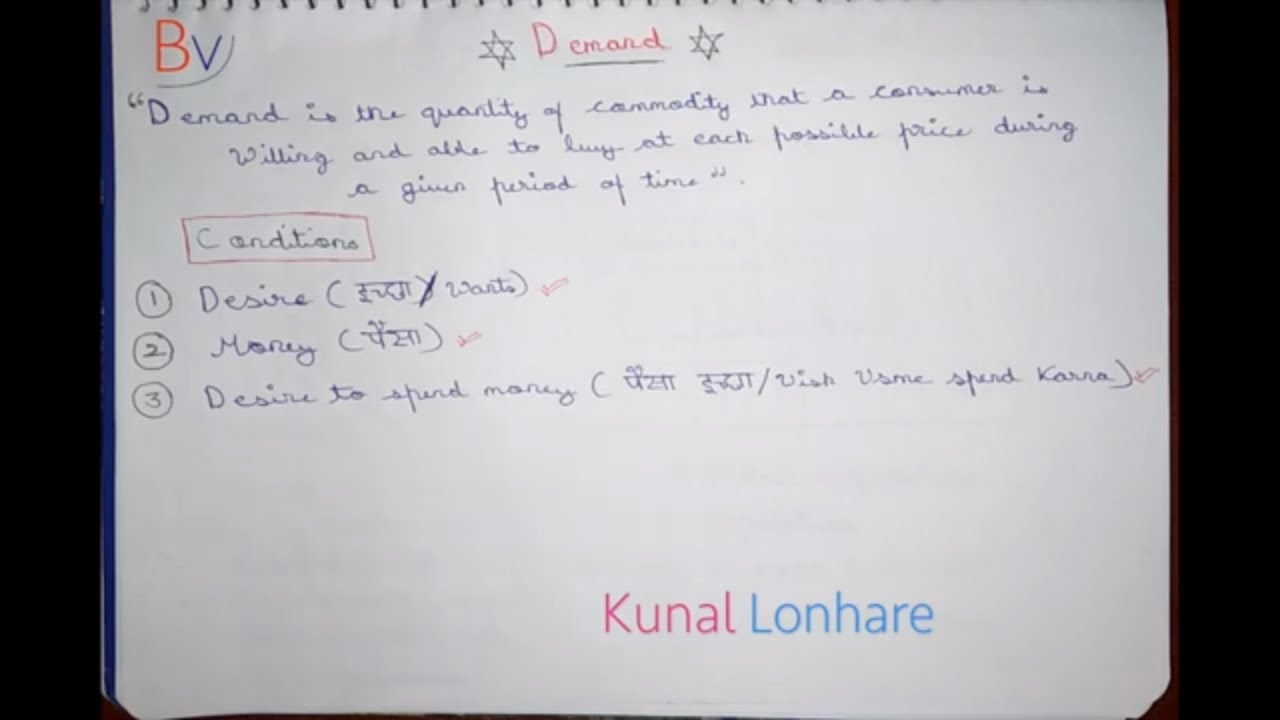 Bv
Demand
“Demand is the quantity of commodity that a consumer is
willing and able to buy at each possible price during
a given period of time”.
Conditions
① Desire (इच्छा/ wants)
② Money (पैसा)
③ Desire to spend money (पैसा इच्छा/wish Usme spend Karna)
Kunal Lonhare